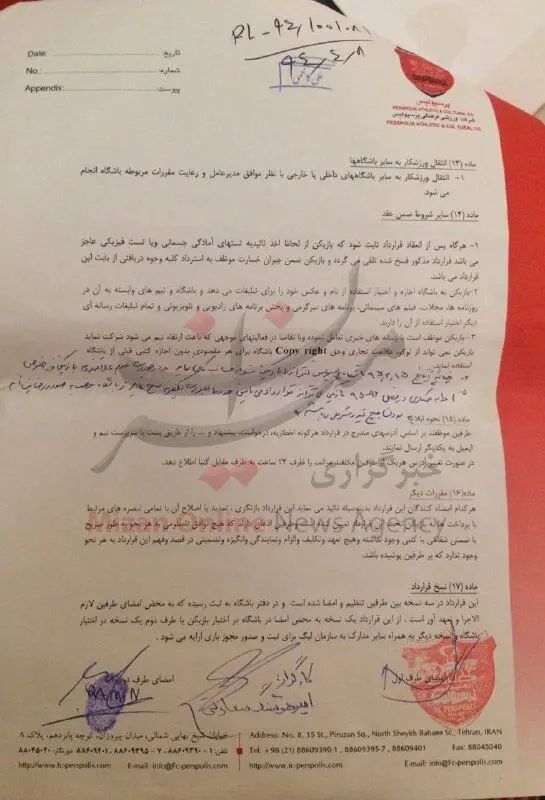 PL-94/100/081
94/4/8
Date:
تاریخ:
No.:
شماره:
Appendix:
پیوست:
پرسپولیس
PERSPOLIS ATHLETIC & CULTURAL CO.
شرکت ورزشی فرهنگی پرسپولیس
PERSPOLIS ATHLETIC & CULTURAL CO.
ماده (۱۳) انتقال ورزشکار به سایر باشگاهها
۱- انتقال ورزشکار به سایر باشگاههای داخلی یا خارجی با نظر موافق مدیرعامل و رعایت مقررات مربوطه باشگاه انجام
می شود.
ماده (۱۴) سایر شروط ضمن عقد
۱- هرگاه پس از انعقاد قرارداد ثابت شود که بازیکن از لحاظ اخذ تائیدیه تستهای آمادگی جسمانی ویا تست فیزیکی عاجز
می باشد قرارداد مذکور فسخ شده تلقی می گردد و بازیکن ضمن جبران خسارت موظف به استرداد کلیه وجوه دریافتی از بابت این
قرارداد می باشد.
۲-بازیکن به باشگاه اجازه و اختیار استفاده از نام و عکس خود را برای تبلیغات می دهد و باشگاه و تیم های وابسته به آن در
روزنامه ها، مجلات، فیلم های سینمائی، برنامه های سرگرمی و پخش برنامه های رادیویی و تلویزیونی و تمام تبلیغات رسانه ای
دیگر اختیار استفاده از آن را دارند.
۳- بازیکن موظف است با رسانه های خبری تعامل نموده وبا تقاضا در فعالیتهای موجهی که باعث ارتقاء تیم می شود شرکت نماید
بازیکن نمی تواند از لوگو، علامت تجاری وحق Copy right باشگاه برای هر مقصودی بدون اجازه کتبی قبلی از باشگاه
استفاده نماید.
ماده (۱۵) نحوه ابلاغ
طرفین موظفند بر اساس آدرسهای مندرج در قرارداد هرگونه اخطاریه، درخواست، پیشنهاد و .... را از طریق پست یا سرپرست تیم و
ایمیل به یکدیگر ارسال نمایند.
در صورت تغییر آدرس هریک از طرفین مکلفند مراتب را ظرف ۲۴ ساعت به طرف مقابل کتبا اطلاع دهد.
خبرگزاری
Mizan Online News Agency
ماده (۱۶) مقررات دیگر
هرکدام امضاء کنندگان این قرارداد بدینوسیله تائید می نماید این قرارداد بازنگری، تمدید یا اصلاح آن با تمامی تبصره های مرتبط
وجود ندارد که بر طرفین پوشیده باشد.
ماده (۱۷) نسخ قرارداد
این قرارداد در سه نسخه بین طرفین تنظیم و امضا شده است و در دفتر باشگاه به ثبت رسیده که به محض امضای طرفین لازم
الاجرا و تعهد آور است . از این قرارداد یک نسخه به محض امضا در باشگاه در اختیار بازیکن یا طرف دوم یک نسخه در اختیار
باشگاه ونسخه دیگر به همراه سایر مدارک به سازمان لیگ برای ثبت و صدور مجوز بازی ارایه می شود .
امضای طرف اول
امضای طرف دوم
کارگزار
RAMIN
FC PERSPOLIS
Address: No. 8, 15 St., Piruzan Sq., North Sheykh Bahaee St., Tehran, IRAN
خیابان شیخ بهایی شمالی، میدان پیروزان، کوچه پانزدهم، پلاک ۸
Tel: +98 (21) 88609390-1 , 88609395-7 , 88609401
Fax: 88045040
تلفن: ۱-۸۸۶۰۹۳۹۰ ، ۷-۸۸۶۰۹۳۹۵ ، ۸۸۶۰۹۴۰۱ دورنگار: ۸۸۰۴۵۰۴۰
http://www.fc-perspolis.com
E-mail: info@Fc-perspolis.com
http://www.fc-perspolis.com
E-mail: info@Fc-perspolis.com